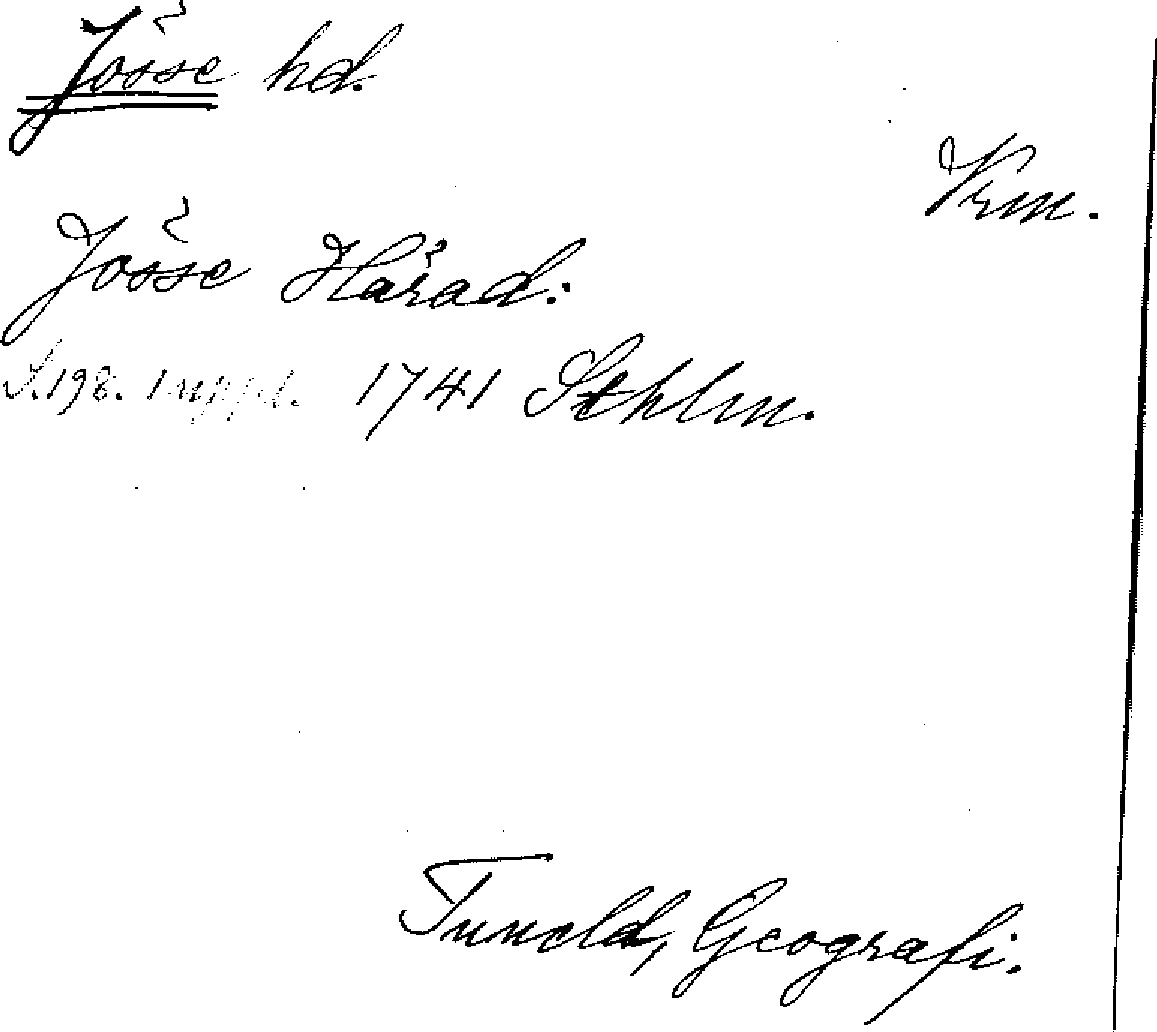 Jösse hd.
Vrm.
Jösse Härad:
S. 198. 1 uppl. 1741 Sthlm.
Tuneld, Geografi.